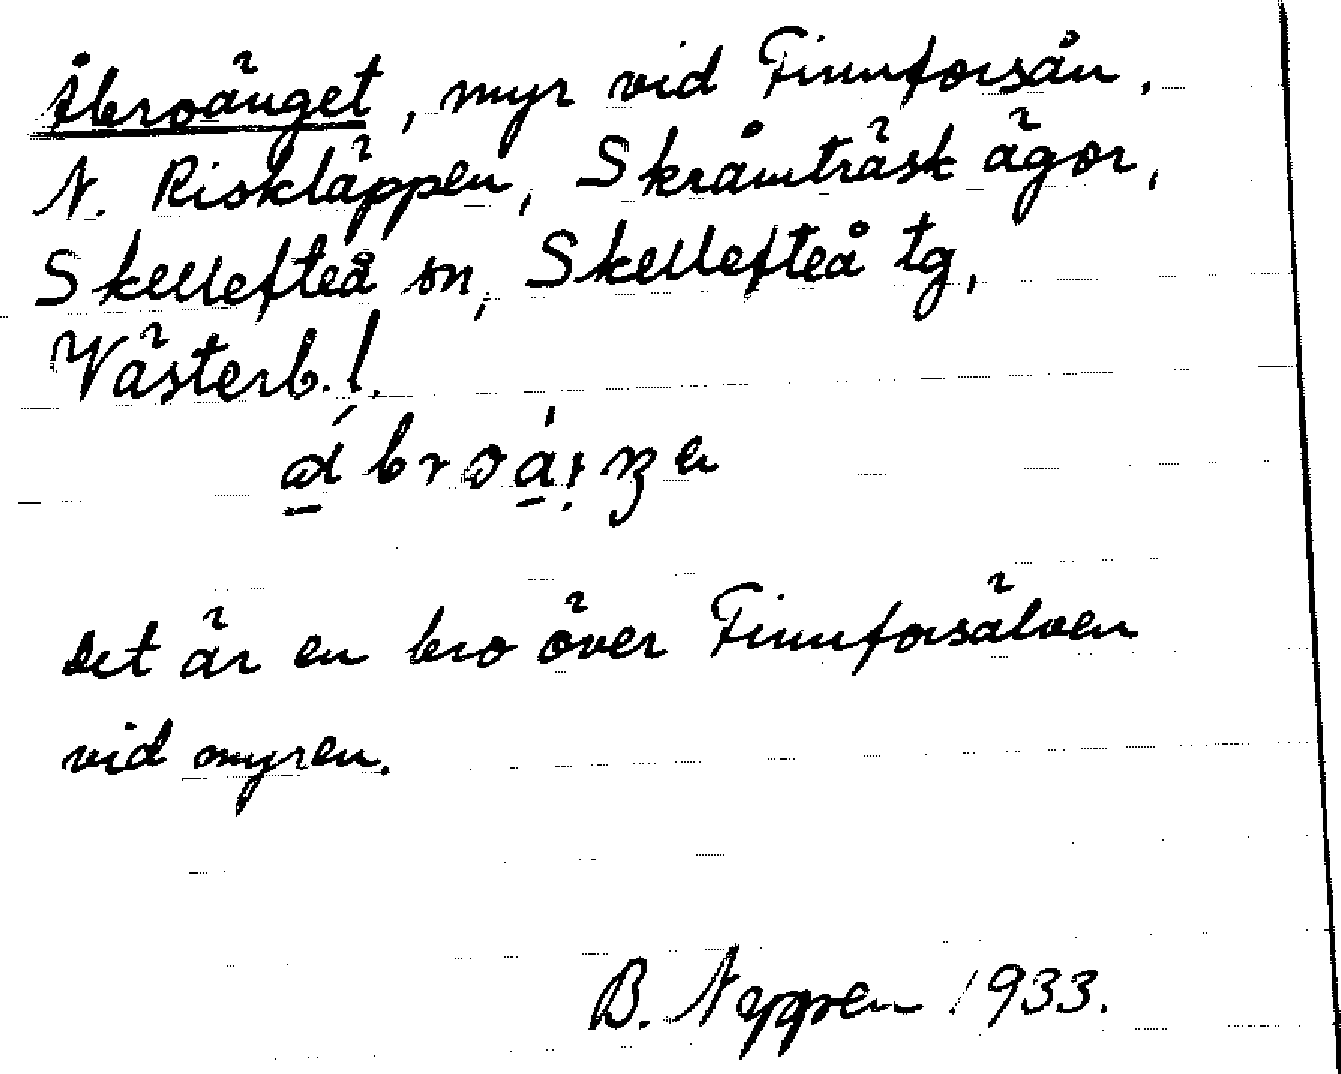 Åbroänget, myr vid Finnforsån,
N. Riskläppen, Skråmträsk ägor,
Skellefteå sn, Skellefteå tg,
Västerb. l.
Det är en bro över Finnforsälven
vid myren.
B. Nyppen 1933.